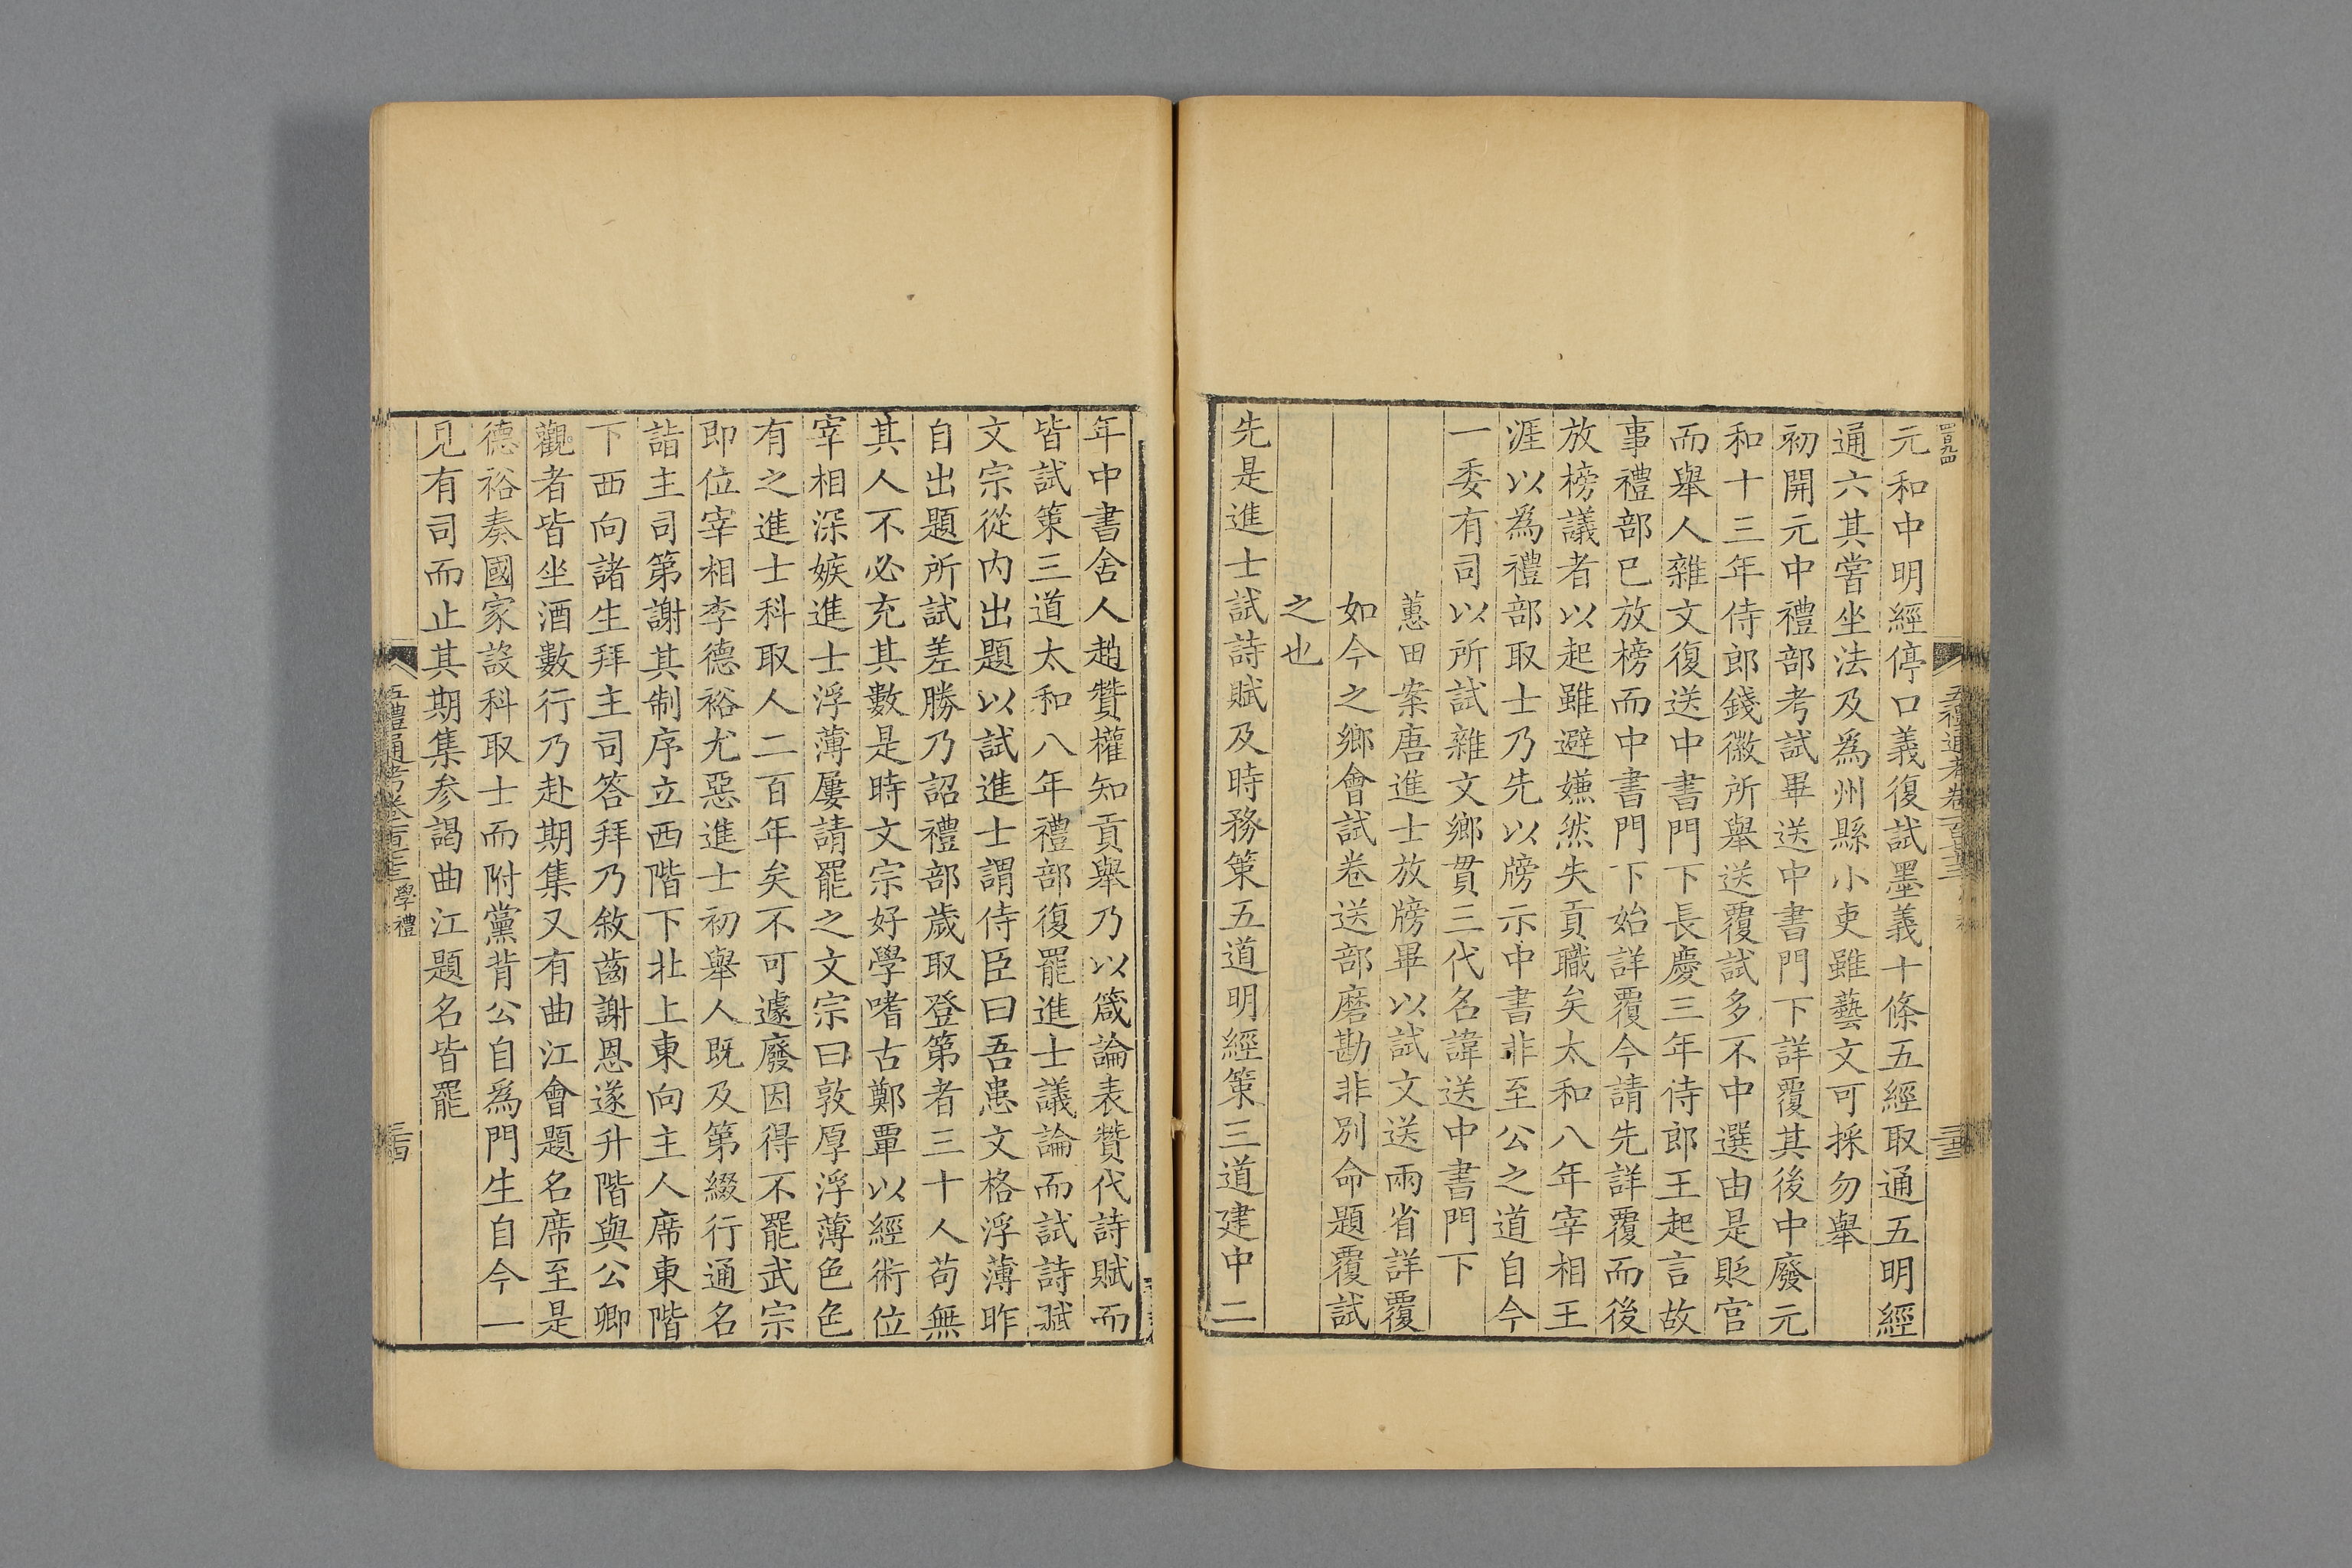 元和中明經停口義復試墨義十條五經取通五明經
通六其嘗坐法及爲州縣小吏雖藝文可採勿舉
初開元中禮部考試畢送中書門下詳覆其後中廢元
和十三年侍郎錢徽所舉送覆試多不中選由是貶官
而舉人雜文復送中書門下長慶三年侍郎王起言故
事禮部已放榜而中書門下始詳覆今請先詳覆而後
放榜議者以起雖避嫌然失貢職矣太和八年宰相王
涯以爲禮部取士乃先以牓示中書非至公之道自今
一委有司以所試雜文鄉貫三代名諱送中書門下
蕙田案唐進士放牓畢以試文送兩省詳覆
如今之鄉會試卷送部磨勘非別命題覆試
之也
先是進士試詩賦及時務策五道明經策三道建中二
年中書舍人趙贊權知貢舉乃以箴論表贊代詩賦而
皆試策三道太和八年禮部復罷進士議論而試詩賦
文宗從內出題以試進士謂侍臣曰吾患文格浮薄昨
自出題所試差勝乃詔禮部歲取登第者三十人苟無
其人不必充其數是時文宗好學嗜古鄭覃以經術位
宰相深嫉進士浮薄屢請罷之文宗曰敦厚浮薄色色
有之進士科取人二百年矣不可遽廢因得不罷武宗
即位宰相李德裕尤惡進士初舉人既及第綴行通名
詣主司第謝其制序立西階下北上東向主人席東階
下西向諸生拜主司答拜乃敘齒謝恩遂升階與公卿
觀者皆坐酒數行乃赴期集又有曲江會題名席至是
德裕奏國家設科取士而附黨背公自爲門生自今一
見有司而止其期集參謁曲江題名皆罷
五禮通考卷一百七十三 學禮